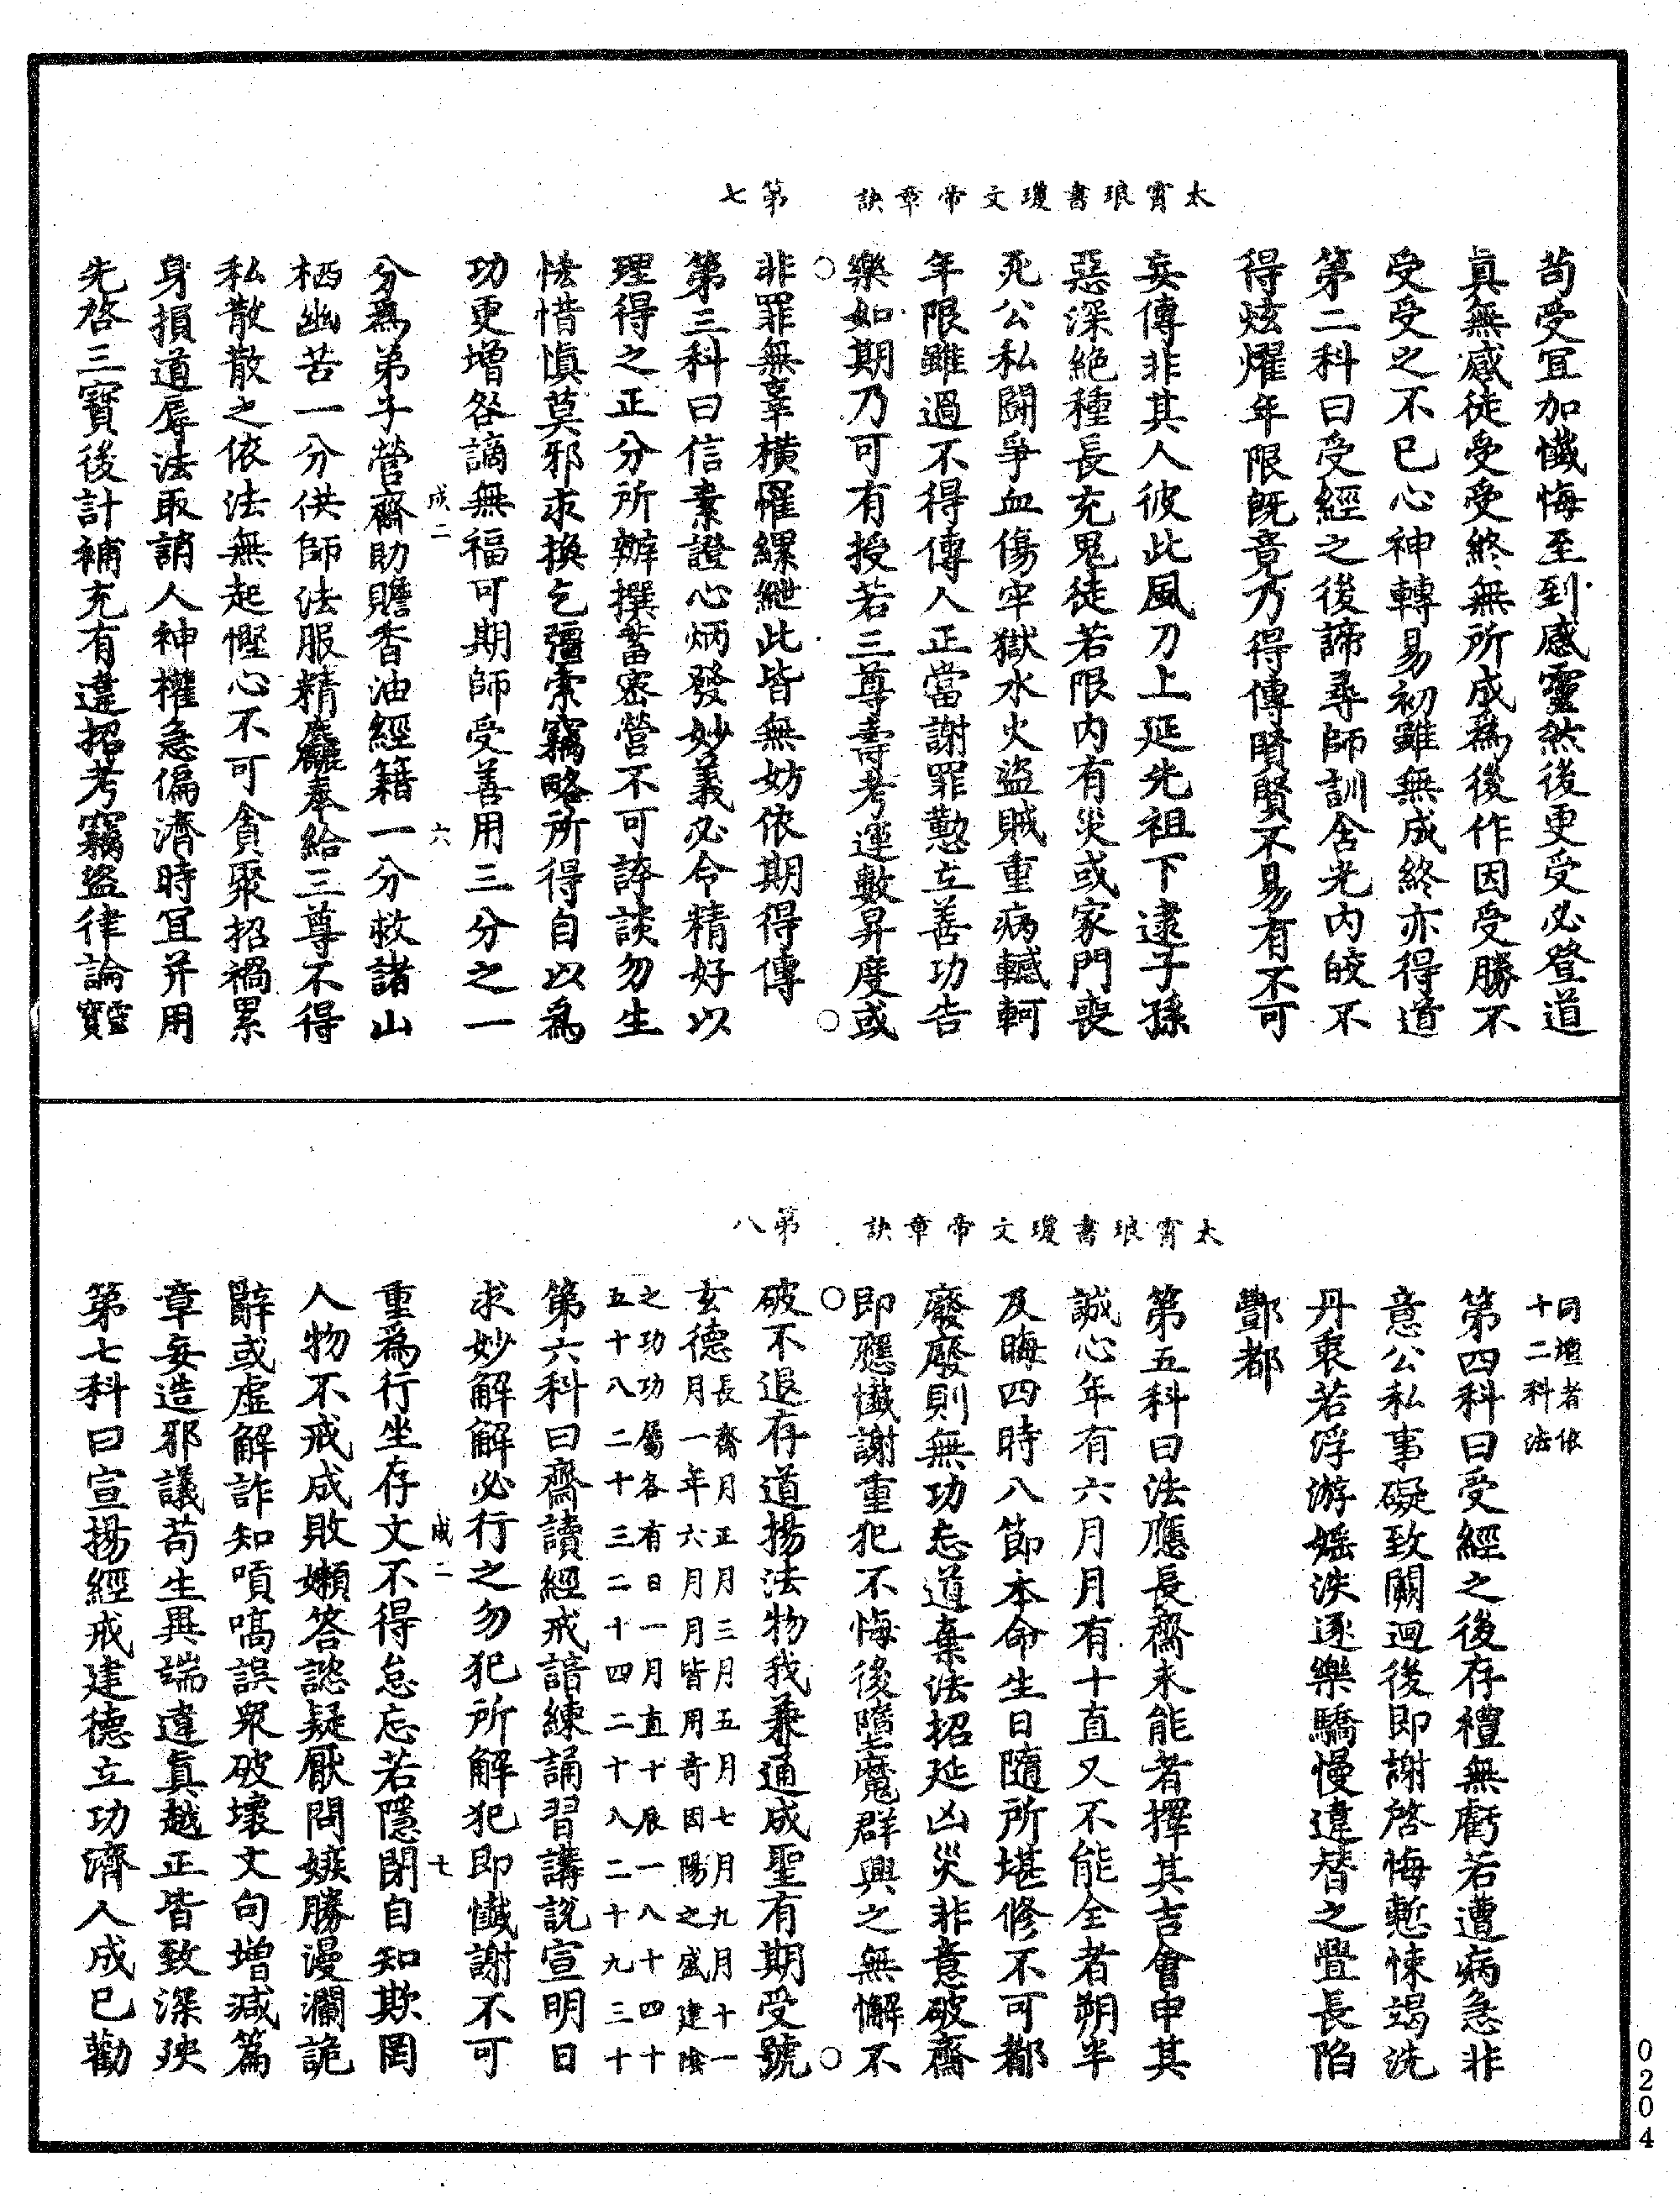 太霄琅書瓊文帝章訣　第七
苟受宜加懺悔至到感靈然後更受必登道
眞無感徒受受終無所成爲後作因受勝不
受受之不已心神轉易初雖無成終亦得道
第二科曰受經之後諦尋師訓含光內皎不
得炫燿年限旣竟乃得傳賢賢不易有不可
妄傳非其人彼此風刀上延先祖下逮子孫
惡深絶種長充鬼徒若限內有災或家門喪
死公私鬪爭血傷牢獄水火盜賊重病轗軻
年限雖過不得傳人正當謝罪懃立善功告
樂如期乃可有授若三尊壽考運數昇度或
非罪無辜橫罹縲紲此皆無妨依期得傳
第三科曰信素證心炳發妙義必令精好以
理得之正分所辦撰蓄密營不可誇談勿生
怯惜愼莫邪求換乞彊索竊略所得自以爲
功更增咎讁無福可期師受善用三分之一
分爲弟子營齋助贍香油經籍一分救諸山
栖幽苦一分供師法服精麤奉給三尊不得
私散散之依法無起慳心不可貪聚招禍累
身損道辱法取誚人神權急偏濟時宜并用
先啓三寶後計補充有違招考竊盜律論靈寶
成二　六
太霄琅書瓊文帝章訣　第八
同壇者依
十二科法
第四科曰受經之後存禮無虧若遭病急非
意公私事礙致闕迴後即謝啓悔慙悚竭洗
丹衷若浮游婬泆逐樂驕慢違替之舋長陷
酆都
第五科曰法應長齋未能者擇其吉會申其
誠心年有六月月有十直又不能全者朔半
及晦四時八節本命生日隨所堪修不可都
廢廢則無功忘道棄法招延凶災非意破齋
即應懺謝重犯不悔後墮魔群興之無懈不
破不退存道揚法物我兼通成聖有期受號
玄德長齋月正月三月五月七月九月十一
月一年六月月皆用奇因陽之盛建陰
之功功屬各有日一月直十辰一八十四十
五十八二十三二十四二十八二十九三十
第六科曰齋讀經戒諳練誦習講說宣明日
求妙解解必行之勿犯所解犯即懺謝不可
重爲行坐存文不得怠忘若隱閉自知欺罔
人物不戒成敗嬾答諮疑厭問嫉勝漫讕詭
辭或虛解詐知嘖嗃誤衆破壞文句增減篇
章妄造邪議苟生異端違眞越正皆致深殃
第七科曰宣揚經戒建德立功濟人成已勸
成二　七
0204